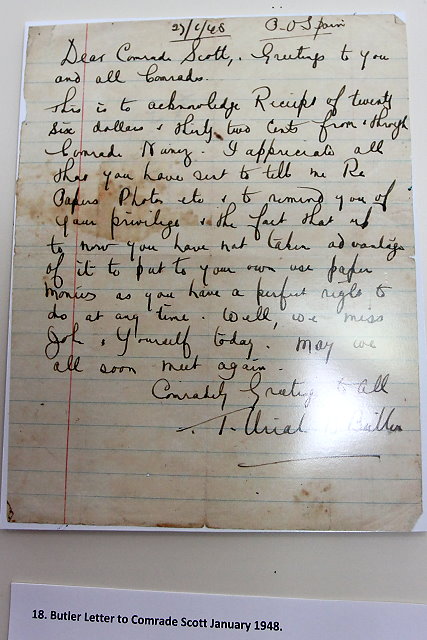 27/1/48 P.O Spain
Dear Comrade Scott, Greetings to you
and all Comrades.
This is to acknowledge Reciept of twenty
six dollars & thirty two cents from & through
Comrade Nunez. I appreciate all
that you have sent to tell me Re
Papers Photos etc & to remind you of
your privilege & the fact that up
to now you have not taken advantage
of it to put to your own use paper
monies as you have a perfect right to
do at any time. Well, we miss
Joh & Yourself today. May we
all soon meet again.
Comradely Greetings to all
T. Uriah B. Butler
18. Butler Letter to Comrade Scott January 1948.